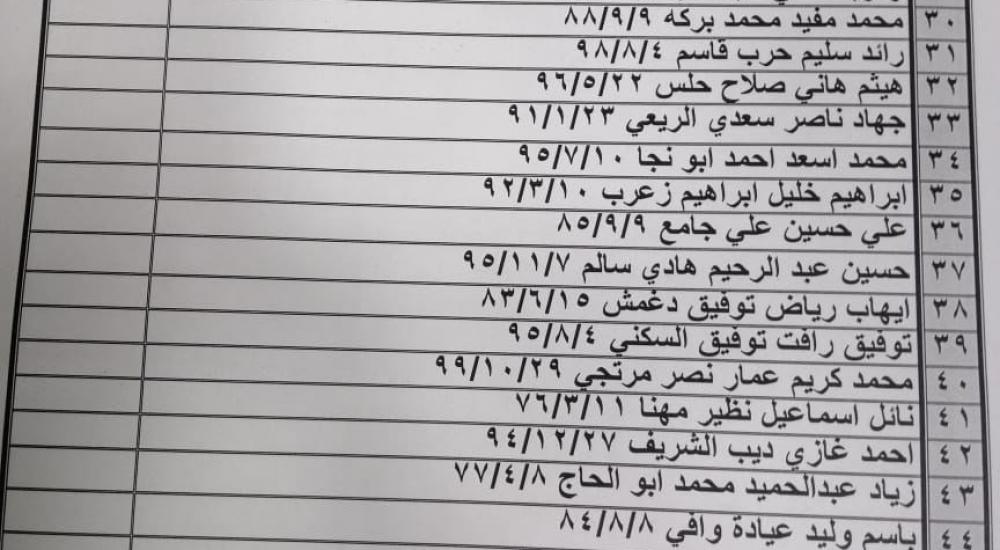 ٣٠ محمد مفيد محمد بركه ٨٨/٩/٩
٣١ رائد سليم حرب قاسم ٩٨/٨/٤
٣٢ هيثم هاني صلاح حلس ٩٦/٥/٢٢
٣٣ جهاد ناصر سعدي الريعي ٩١/١/٢٣
٣٤ محمد اسعد احمد ابو نجا ٩٥/٧/١٠
٣٥ ابراهيم خليل ابراهيم زعرب ٩٢/٣/١٠
٣٦ علي حسين علي جامع ٨٥/٩/٩
٣٧ حسين عبد الرحيم هادي سالم ٩٥/١١/٧
٣٨ ايهاب رياض توفيق دغمش ٨٣/٦/١٥
٣٩ توفيق رافت توفيق السكني ٩٥/٨/٤
٤٠ محمد كريم عمار نصر مرتجي ٩٩/١٠/٢٩
٤١ نائل اسماعيل نظير مهنا ٧٦/٣/١١
٤٢ احمد غازي ديب الشريف ٩٤/١٢/٢٧
٤٣ زياد عبدالحميد محمد ابو الحاج ٧٧/٤/٨
٤٤ باسم وليد عيادة وافي ٨٤/٨/٨